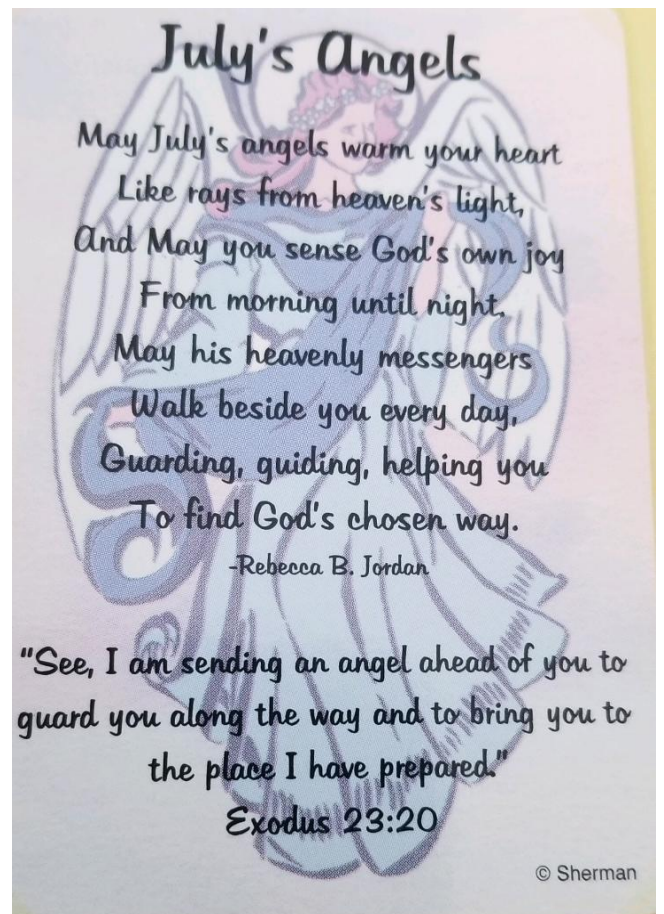 July's Angels
May July's angels warm your heart
Like rays from heaven's light,
And May you sense God's own joy
From morning until night.
May his heavenly messengers
Walk beside you every day,
Guarding, guiding, helping you
To find God's chosen way.
-Rebecca B. Jordan
"See, I am sending an angel ahead of you to
guard you along the way and to bring you to
the place I have prepared."
Exodus 23:20
© Sherman